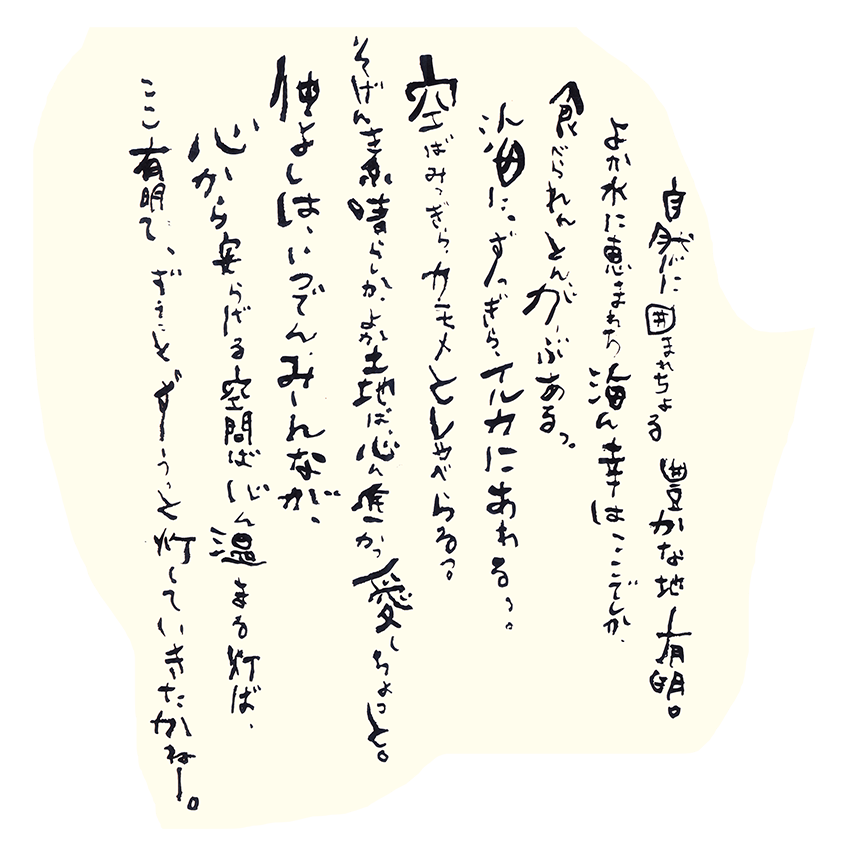 自然に囲まれちょる 豊かな地 有明。
よか水に恵まれた海ん幸は、ここでしか、
食べられんとんが、ぶあるっ。
海に、ずっぎら、イルカにあわるっ。
空ばみっぎら、カモメとしゃべらるっ。
そげん素晴らしか、よか土地ば、心ん底から愛しちょっと。
仲よしは、いつでん、みーんなが、
心から安らげる空間ば心ん温まる灯ば、
ここ有明で、ずぅーと ずーうっと灯していきたかねー。